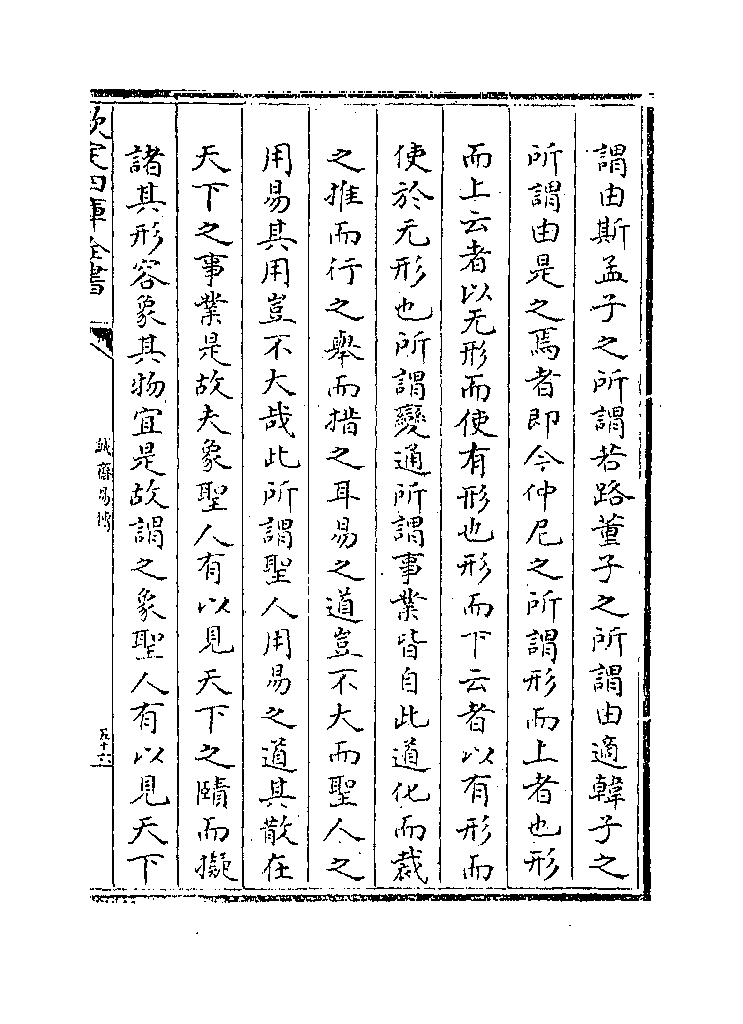 謂由斯孟子之所謂若路董子之所謂由適韓子之
所謂由是之焉者即今仲尼之所謂形而上者也形
而上云者以无形而使有形也形而下云者以有形而
使於无形也所謂變通所謂事業皆自此道化而裁
之推而行之舉而措之耳易之道豈不大而聖人之
用易其用豈不大哉此所謂聖人用易之道其散在
天下之事業是故夫象聖人有以見天下之賾而擬
諸其形容象其物宜是故謂之象聖人有以見天下
欽定四庫全書
誠齋易傳
五十六